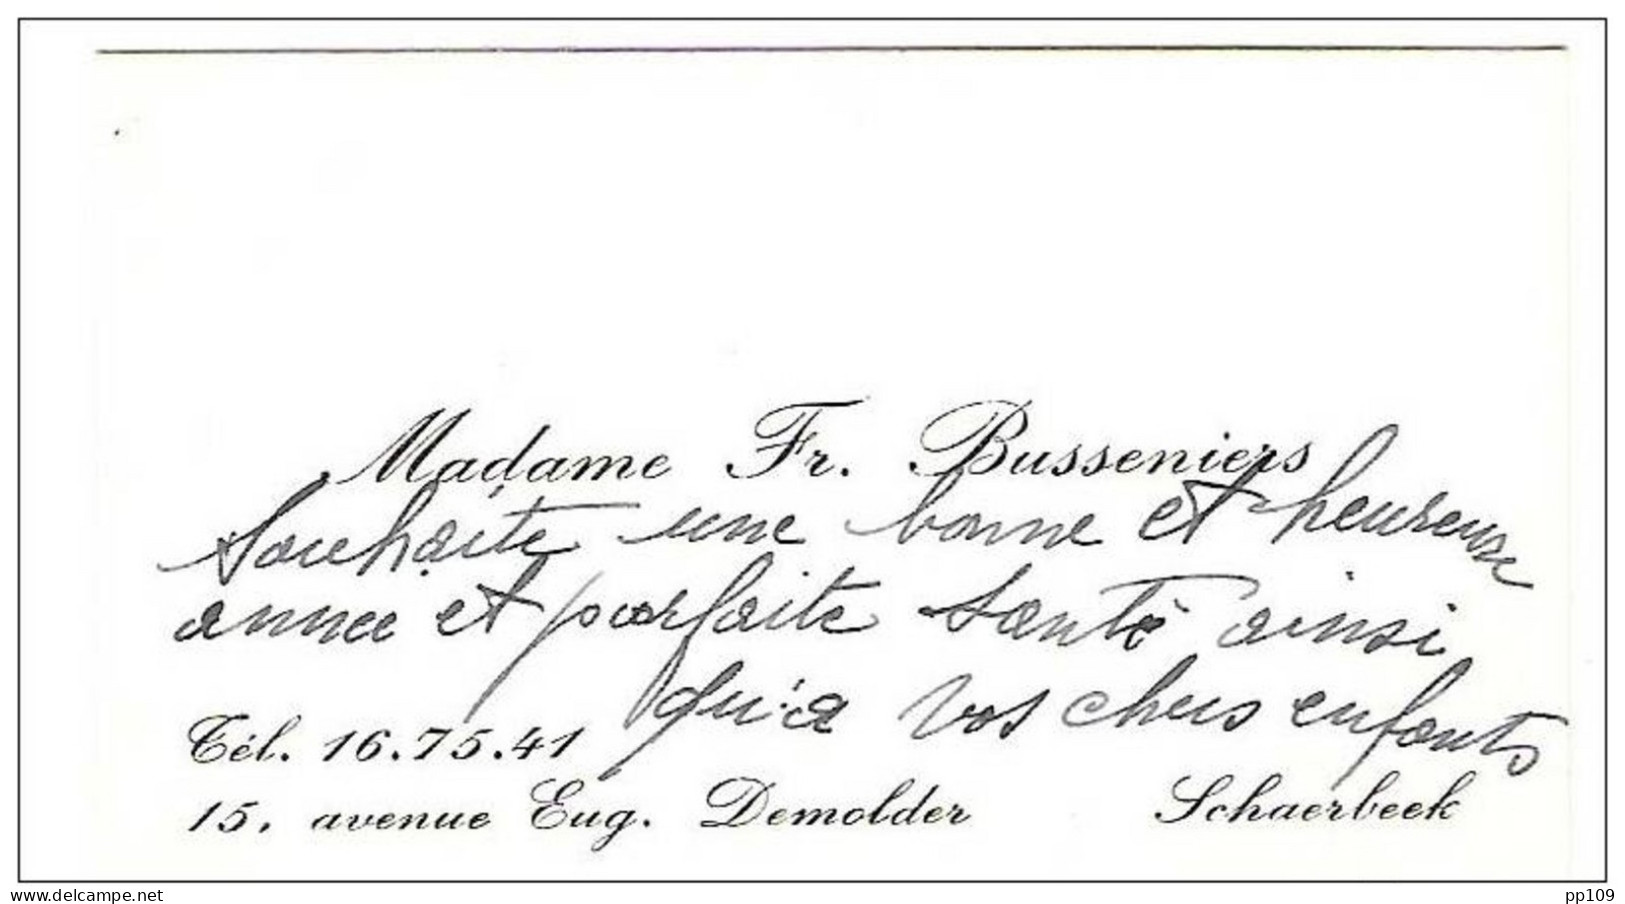 Madame Fr. Busseniers
souhaite une bonne et heureuse
annee et parfaite santé ainsi
qu'a vos chers enfants
Tél. 16.75.41
15, avenue Eug. Demolder Schaerbeek
delcampe.net
pp109